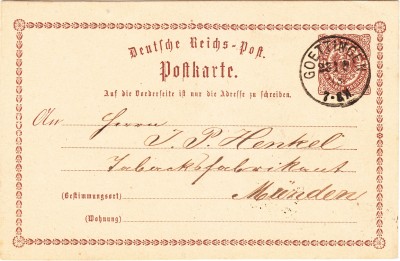 Deutsche Reichs-Post.
Postkarte.
GOETTINGEN
7-8 N.
Auf die Vorderseite ist nur die Adresse zu schreiben.
An Herrn
J. P. Henkel
Tabacksfabrikant
(Bestimmungsort) Münden
(Wohnung)